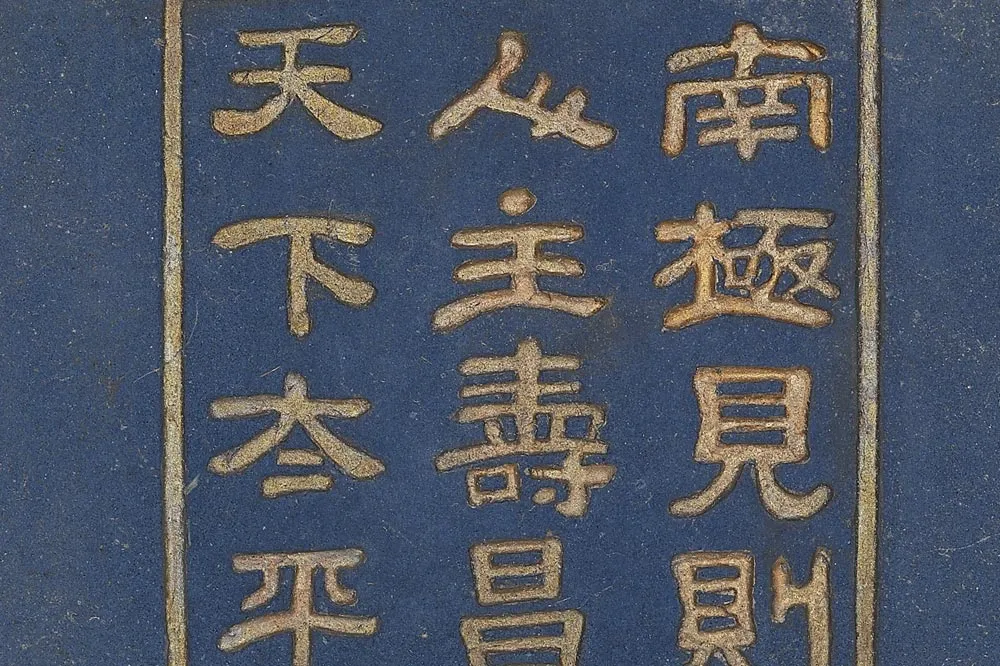 南極見則
人主壽昌
天下夳平